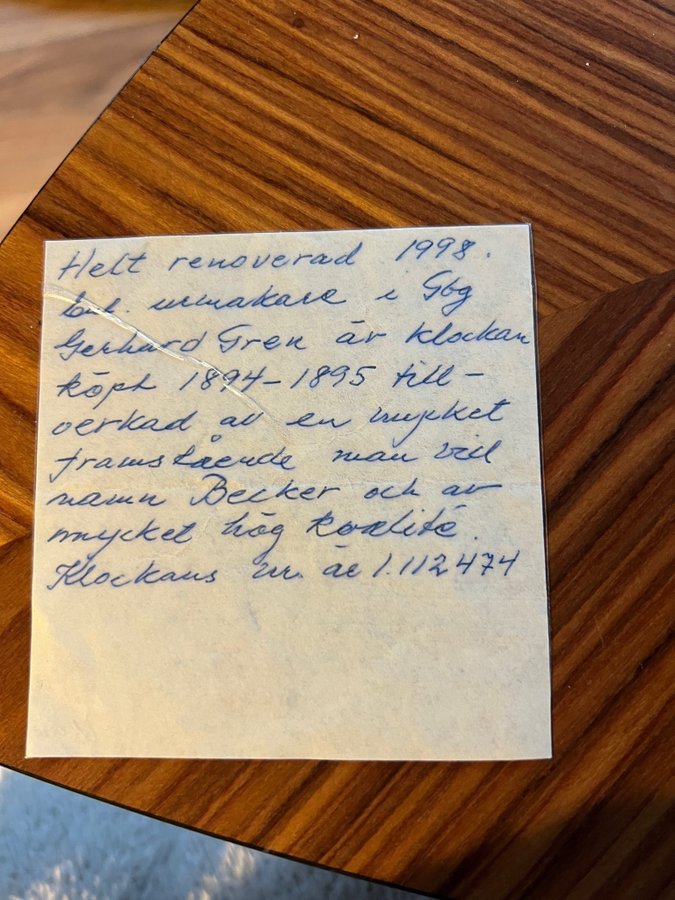 Helt renoverad 1998.
enl. urmakare i Gbg
Gerhard Gren är klockan
köpt 1894-1895 till-
verkad av en mycket
framstående man vid
namn Becker och av
mycket hög kvalité.
Klockans nr. är 1.112474